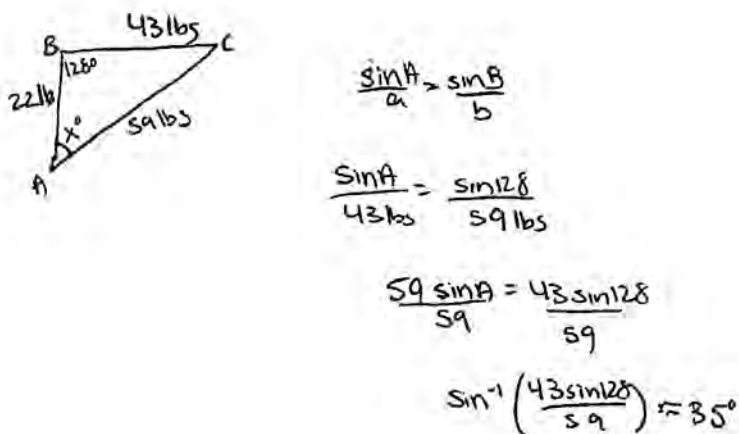 43 lbs
B C
128°
22 lb
x° 59 lbs
A
sinA/a = sinB/b
sinA/43 lbs = sin128/59 lbs
59 sinA/59 = 43 sin128/59
sin⁻¹ (43 sin128/59) ≈ 35°